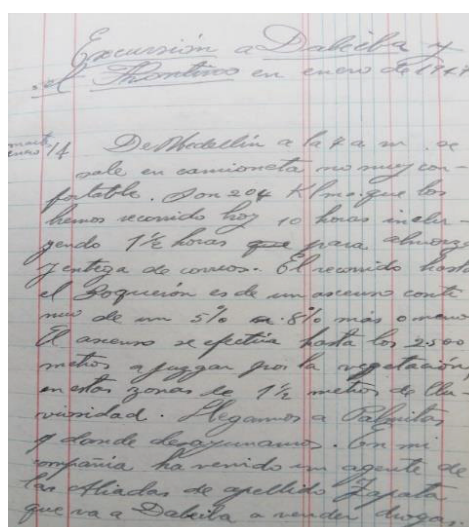 Excursión a Dabeiba y
el Frontino en enero de 1947
martes
enero 14 De Medellín a las 7 a m. se
sale en camioneta no muy con-
fortable. Son 204 Klms. que los
hemos recorrido hoy 10 horas inclu-
yendo 1½ horas para almorz
y entrega de correos. El recorrido hasta
el Boquerón es de un ascenso conti
nuo de un 5% a 8% más o meno
El ascenso se efectúa hasta los 2500
metros a juzgar por la vegetación,
en estas zonas de 1½ metros de llu
viosidad. Llegamos a Palmitas
y donde desayunamos. En mi
compañia ha venido un agente de
las Aliadas de apellido Zapata
que va a Dabeiba a vender droga